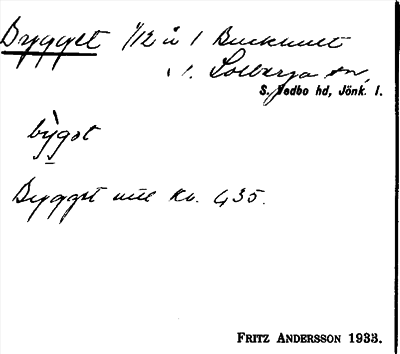 Brygget 1/12 å 1 Buckhult
i S. Solberga sn,
S. Vedbo hd, Jönk. l.
bỳgət
Bygget mtl Kv. 435.
FRITZ ANDERSSON 1933.